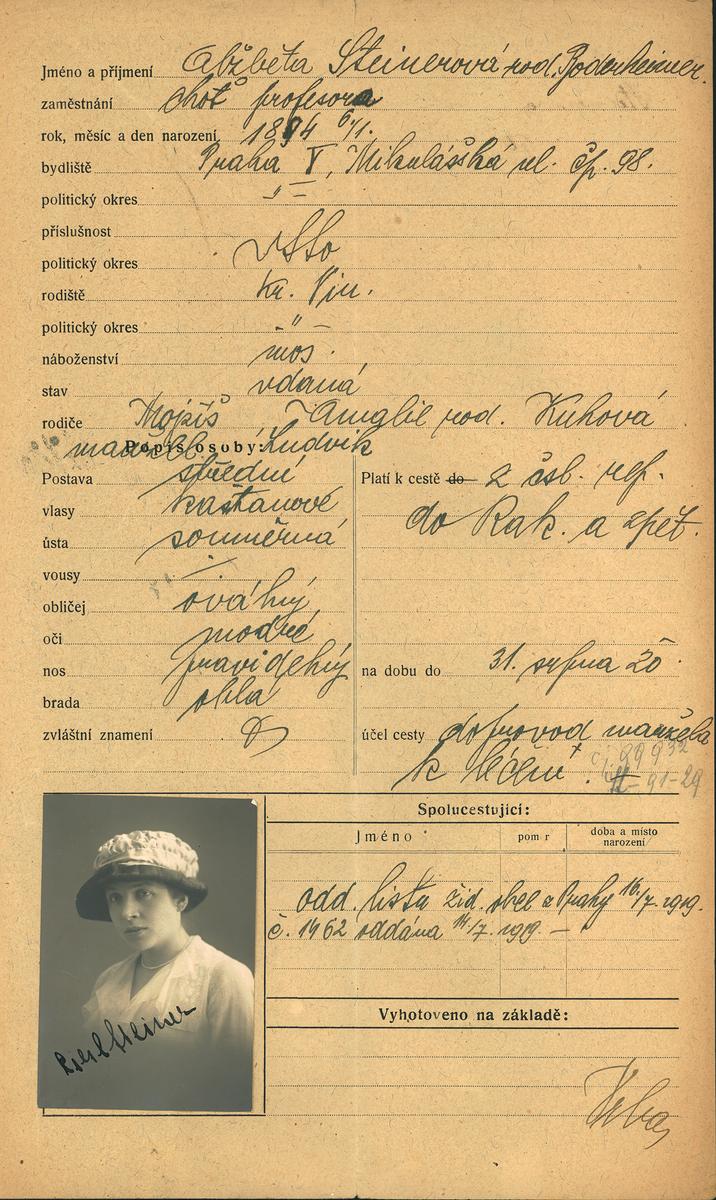 Jméno a příjmení Alžběta Steinerová rod. Bodenheimer.
zaměstnání choť profesora
rok, měsíc a den narození 1894 6/1.
bydliště Praha V, Mikulášská ul. čp. 98.
politický okres -"-
příslušnost
politický okres
rodiště Kr. Vin.
politický okres -"-
náboženství mos.
stav vdaná
rodiče Mojžíš Amalie rod. Kuhová
manžel Ludvík
Popis osoby:
Postava střední
vlasy kaštanové
ústa souměrná
vousy -
obličej oválný
oči modré
nos pravidelný
brada oblá
zvláštní znamení
Platí k cestě do 2 čsl. rep.
do Rak. a zpět.
na dobu do 31. srpna 20
účel cesty doprovod manžela
k léčení.
Spolucestující:
Jméno pom r doba a místo narození
odd. lista žid. obce z Prahy 16/7. 1919.
č. 1462 oddána 14/7. 1919. -
Vyhotoveno na základě:
Steiner